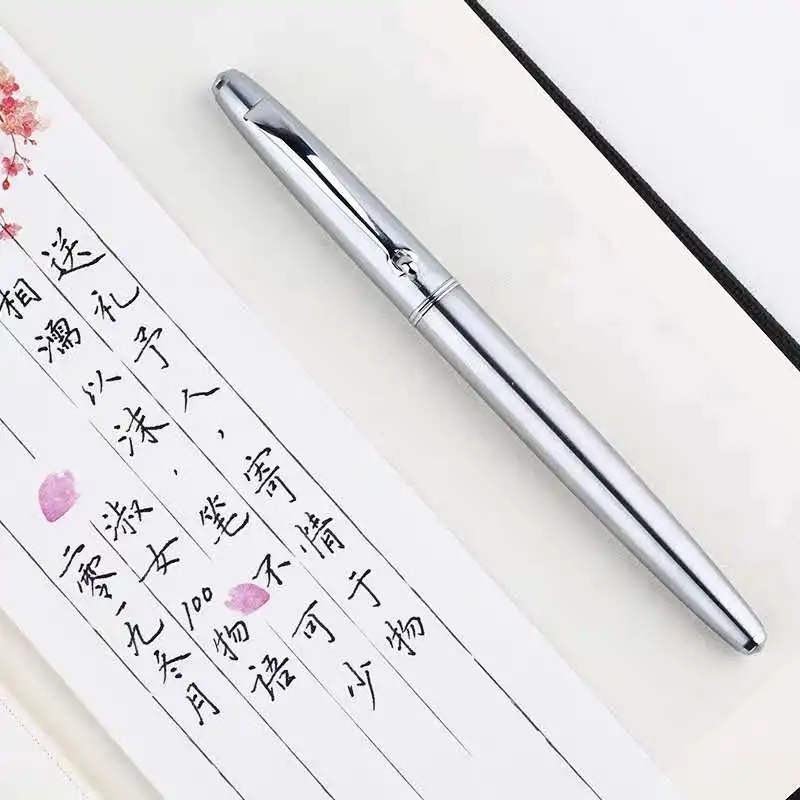 送礼予人，寄情于物
相濡以沫，笔不可少
淑女100物语
二零一九冬月